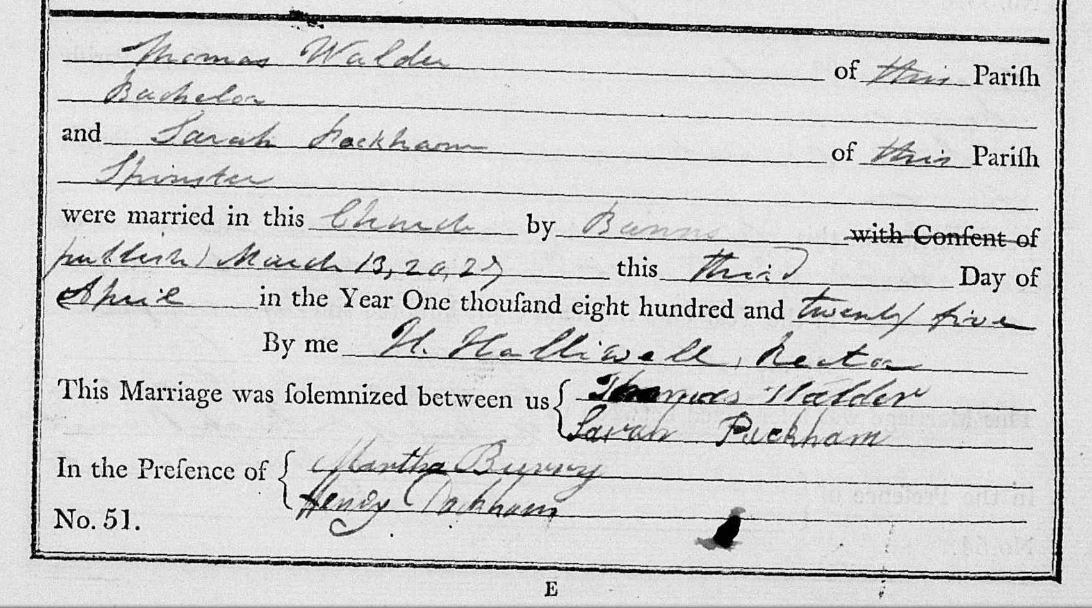 Thomas Walder of this Pariſh
Bachelor
and Sarah Packham of this Pariſh
Spinster
were married in this Church by Banns with Conſent of
publish) March 13, 20, 27 this third Day of
April in the Year One thouſand eight hundred and twenty five
By me H. Halliwell, Rector
This Marriage was ſolemnized between us { Thomas Walder
Sarah Packham
In the Preſence of { Martha
Henry Packham
No. 51.
E